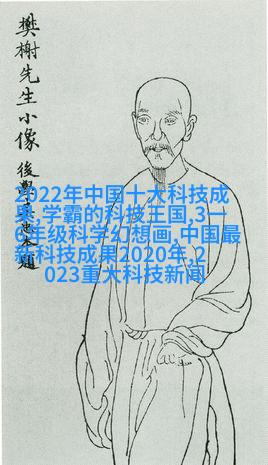 樊榭先生小像
後學
題
2022年中国十大科技成
果,学霸的科技王国,3一
6年级科学幻想画,中国最
新科技成果2020年,2
023重大科技新闻